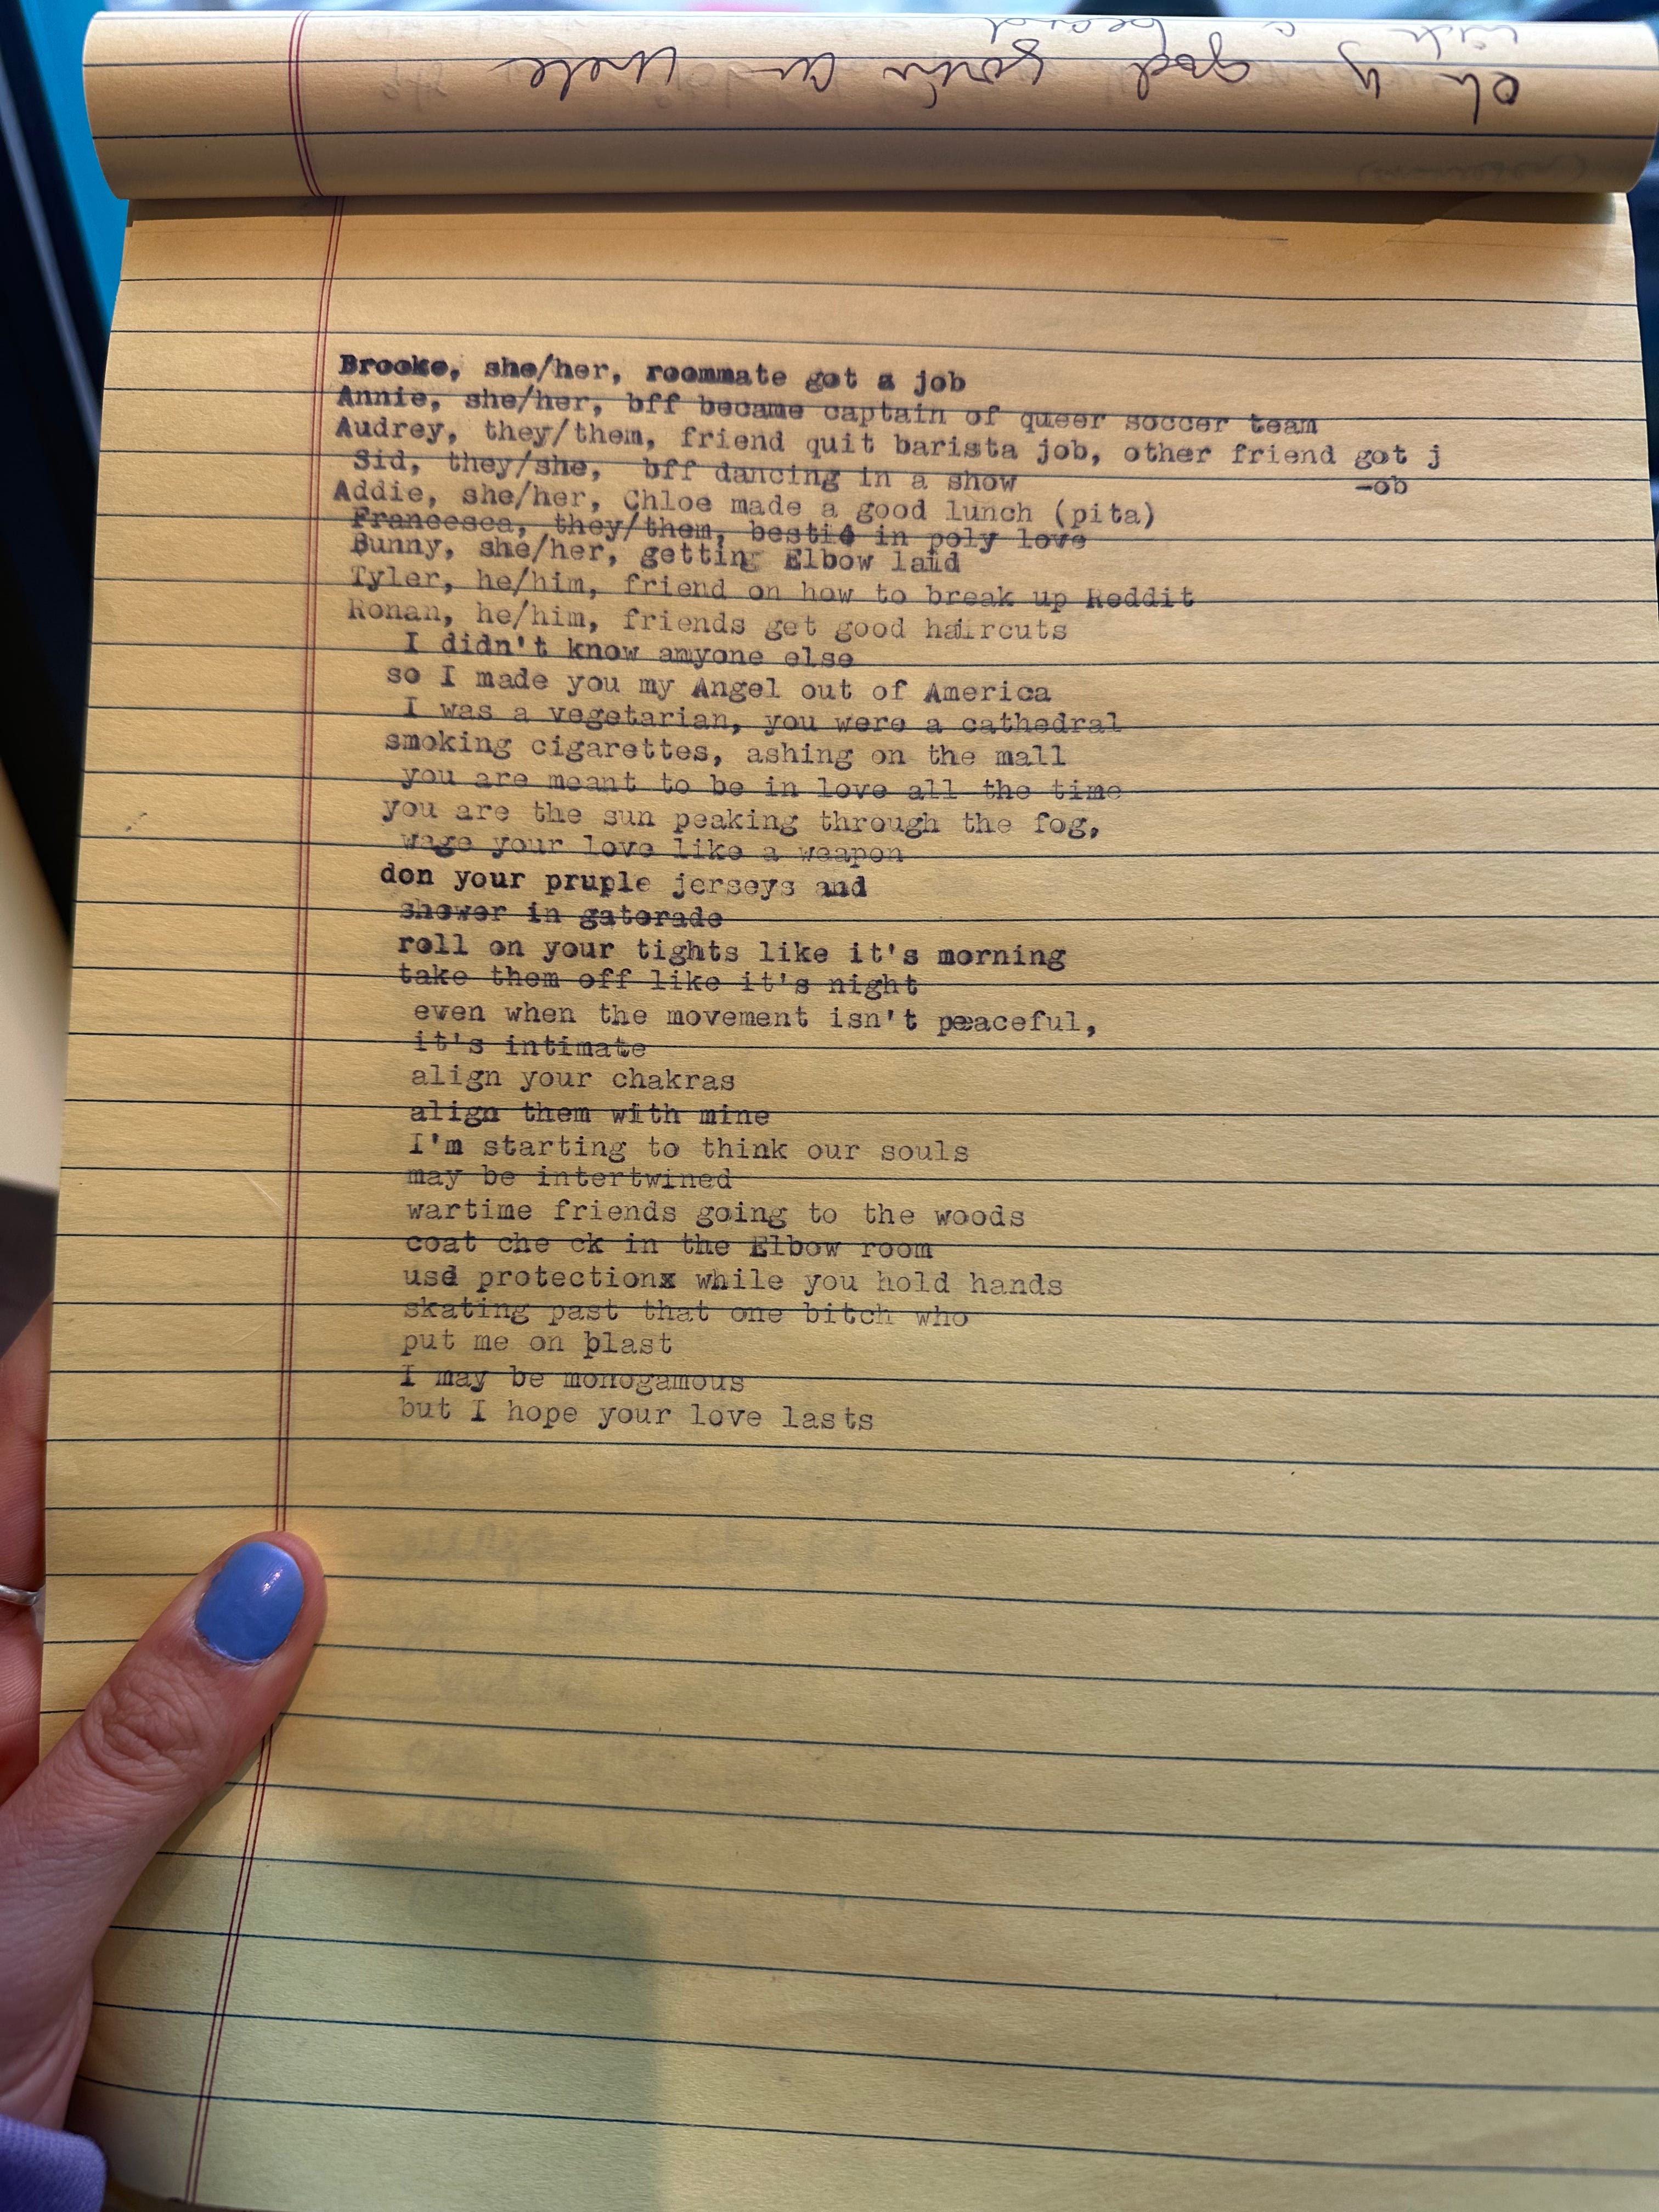 oh y god youre an uncle
Brooke, she/her, roommate got a job
Annie, she/her, bff became captain of queer soccer team
Audrey, they/them, friend quit barista job, other friend got j
-ob
Sid, they/she, bff dancing in a show
Addie, she/her, Chloe made a good lunch (pita)
Francesca, they/them, bestie in poly love
Bunny, she/her, getting Elbow laid
Tyler, he/him, friend on how to break up Reddit
Ronan, he/him, friends get good haircuts
I didn't know anyone else
so I made you my Angel out of America
I was a vegetarian, you were a cathedral
smoking cigarettes, ashing on the mall
you are meant to be in love all the time
you are the sun peaking through the fog,
wage your love like a weapon
don your pruple jerseys and
shower in gatorade
roll on your tights like it's morning
take them off like it's night
even when the movement isn't peaceful,
it's intimate
align your chakras
align them with mine
I'm starting to think our souls
may be intertwined
wartime friends going to the woods
coat che ck in the Elbow room
use protectionx while you hold hands
skating past that one bitch who
put me on blast
I may be monogamous
but I hope your love lasts